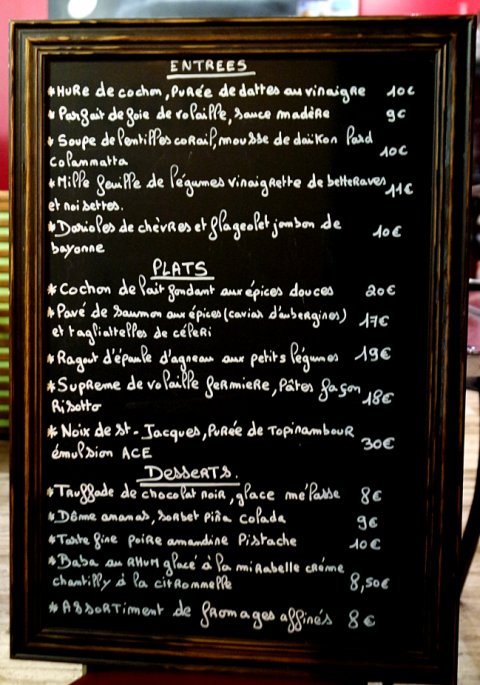 ENTREES
*HURE de cochon, PURÉE de dattes au vinaigre 10€
*Parfait de foie de volaille, sauce madère 9€
*Soupe de lentilles corail, mousse de daïkon lard
colammatta 10€
*Mille feuille de légumes vinaigrette de betteraves
et noisettes. 11€
*Darioles de chèvres et flageolet jambon de
bayonne 10€
PLATS
*Cochon de lait fondant aux épices douces 20€
*Pavé de saumon aux épices (caviar d'aubergines)
et tagliattelles de céleri 17€
*Ragout d'épaule d'agneau aux petits légumes 19€
*Supreme de volaille fermiere, Pâtes façon
Risotto 18€
*Noix de St-Jacques, PURÉE de TOPINAMBOUR
émulsion ACE 30€
DESSERTS.
*Truffade de chocolat noir, glace mélasse 8€
*Dôme ananas, sorbet piña colada 9€
*Tarte fine poire amandine Pistache 10€
*Baba au RHUM glacé à la mirabelle crème
chantilly à la citronnelle 8,50€
*ASSORTIMENT de fromages affinés 8€